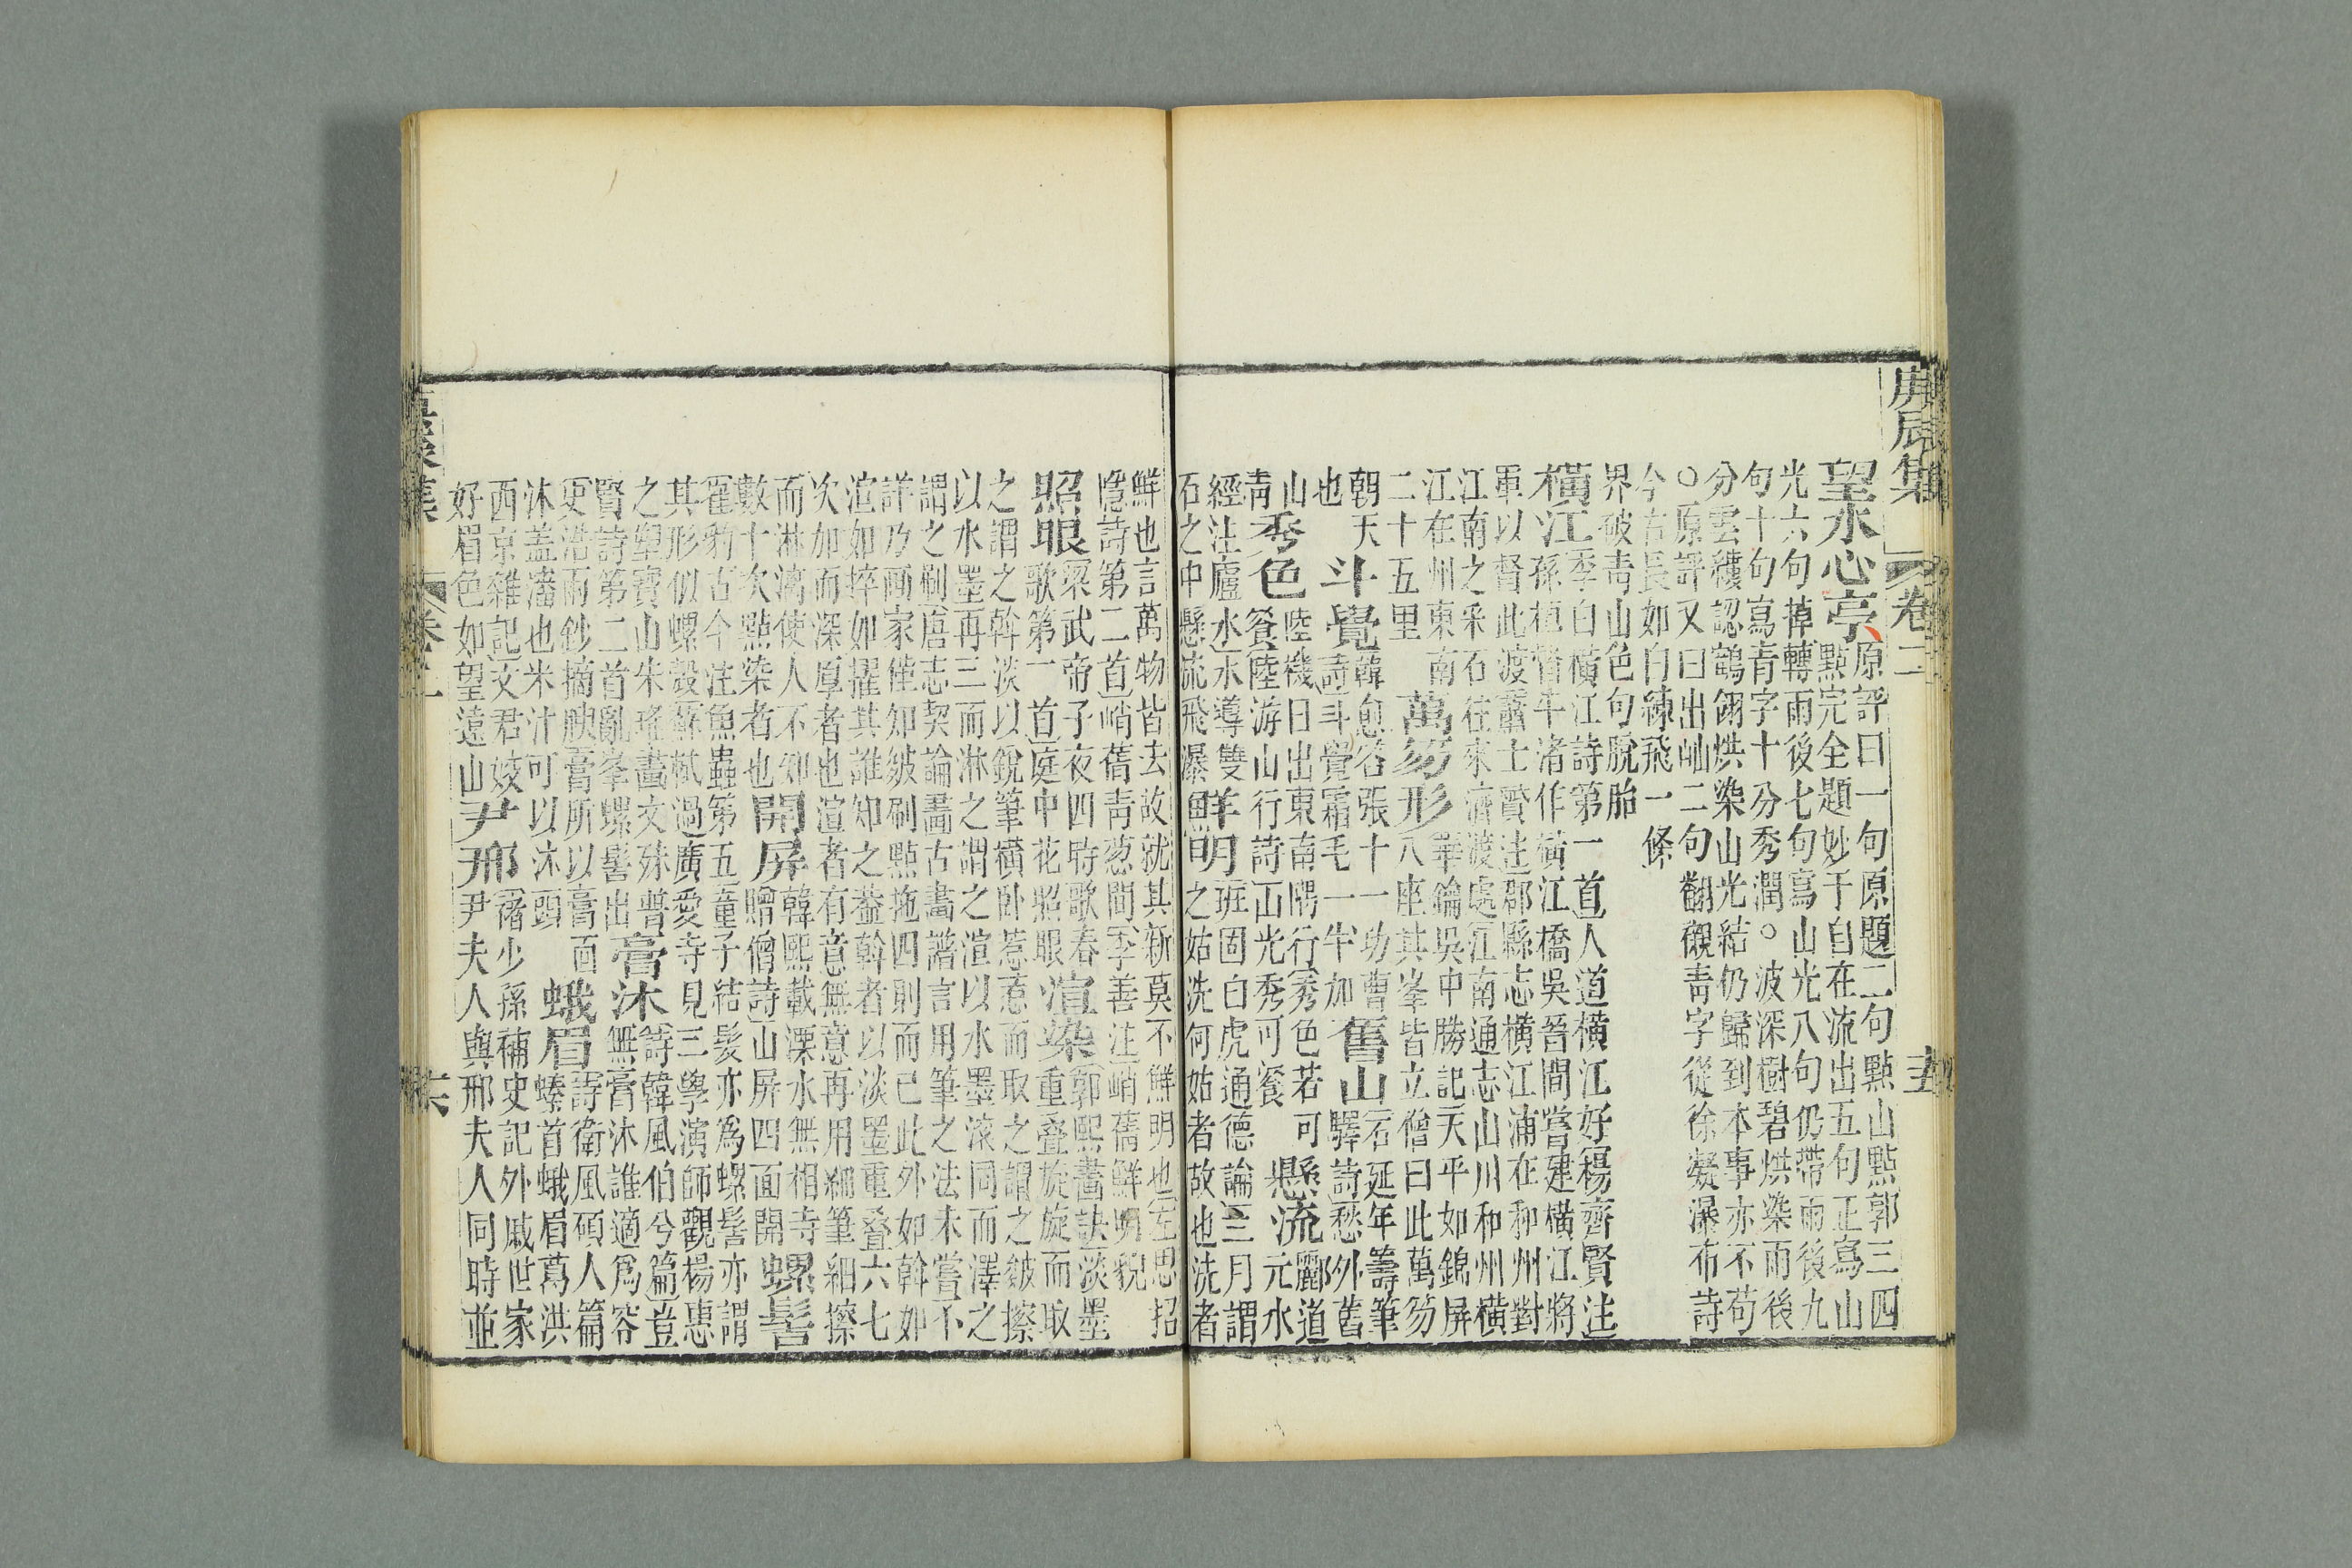 庚辰集 卷二 十五
望水心亭
原評曰一句原題二句點山點郭三四
點完全題妙于自在流出五句正寫山
光六句掉轉雨後七句寫山光八句仍帶雨後九
句十句寫靑字十分秀潤○波深樹碧烘染雨後
分雲縷認鶴翎烘染山光結仍歸到本事亦不苟
○原評又曰出岫二句翻襯靑字從徐凝瀑布詩
今古長如白練飛一條
界破靑山色句脫胎
橫江
李白橫江詩第一首人道橫江好楊齊賢注
孫桓督牛渚作橫江橋吳晉間嘗建橫江將
軍以督此渡蕭士贇注郡縣志橫江浦在和州對
江南之采石往來濟渡處江南通志山川和州橫
江在州東南
二十五里
萬笏形
筆鑰吳中勝記天平如錦屏
八座其峯皆立僧曰此萬笏
朝天
也
斗覺
韓愈答張十一功曹
詩斗覺霜毛一半加
舊山
石延年籌筆
驛詩愁外舊
山
靑
秀色
陸機日出東南隅行秀色若可
餐陸游山行詩山光秀可餐
懸流
酈道
元水
經注廬水水導雙
石之中懸流飛瀑
鮮明
班固白虎通德論三月謂
之姑洗何姑者故也洗者
鮮也言萬物皆去故就其新莫不鮮明也左思招
隱詩第二首峭蒨靑葱間李善注峭蒨鮮明貌
照眼
梁武帝子夜四時歌春
歌第一首庭中花照眼
渲染
郭熙畵訣淡墨
重疊旋旋而取
之謂之斡淡以銳筆橫卧惹惹而取之謂之皴擦
以水墨再三而淋之謂之渲以水墨滚同而澤之
謂之刷唐志契論畵古畵譜言用筆之法未嘗不
詳乃画家僅知皴刷點拖四則而已此外如斡如
渲如捽如擢其誰知之葢斡者以淡墨重叠六七
次加而深厚者也渲者有意無意再用細筆細擦
而淋漓使人不知
數十次點染者也
開屏
韓熙載溧水無相寺
贈僧詩山屏四面開
螺髻
崔豹古今注魚蟲第五童子結髮亦爲螺髻亦謂
其形似螺殼蘇軾過廣愛寺見三學演師觀楊惠
之塑寶山朱瑤畵文殊普
賢詩第二首亂峯螺髻出
膏沐
詩韓風伯兮篇豈
無膏沐誰適爲容
史浩雨鈔摘腴膏所以膏面
沐蓋瀋也米汁可以沐頭
蛾眉
詩衛風碩人篇
螓首蛾眉葛洪
西京雜記文君姣
好眉色如望遠山
尹邢
褚少孫補史記外戚世家
尹夫人與邢夫人同時並